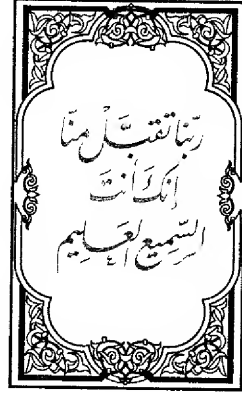 ربنا تقبل منا
إنك أنت
السميع العليم